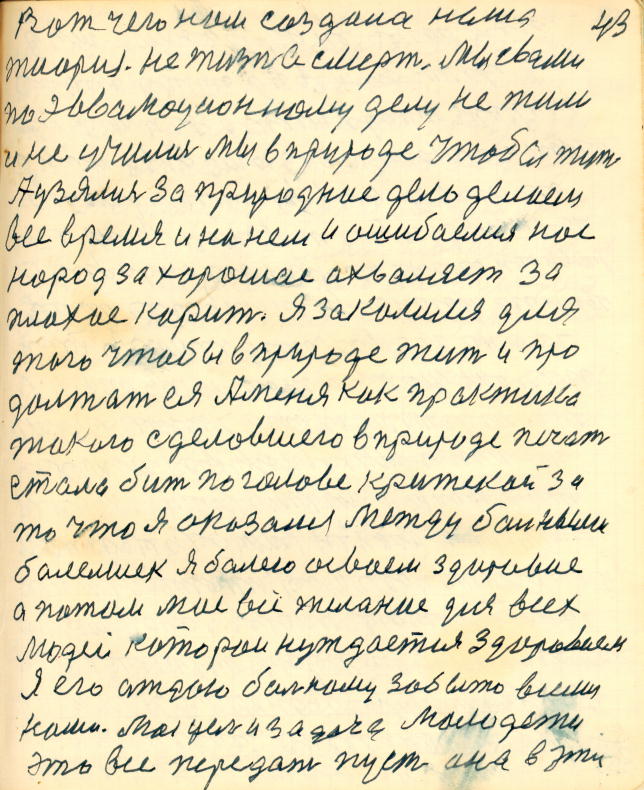 Вот чего нам создала наша 43
тиория. не жизн а смерт. Мы свами
по эввалюционному делу не жили
и не училис Мы в природе чтобы жит
А узялис за природное дело делаем
все время и на нем и ошибаемся нас
народ за хорошае ахваляет за
плохое карит. Я закалился для
того чтобы в природе жит и про
должатся А меня как практика
такого сделовшего в природе
стала бит по голове критекой за
то что Я оказался Между бальными
Я балею своем здоровие
а потом мое все желание для всех
людей которои нуждается здоровием
Я его атдаю балному забыто всеми
нами. Моя цел и задача Молодежи
это все передат пуст она в эти